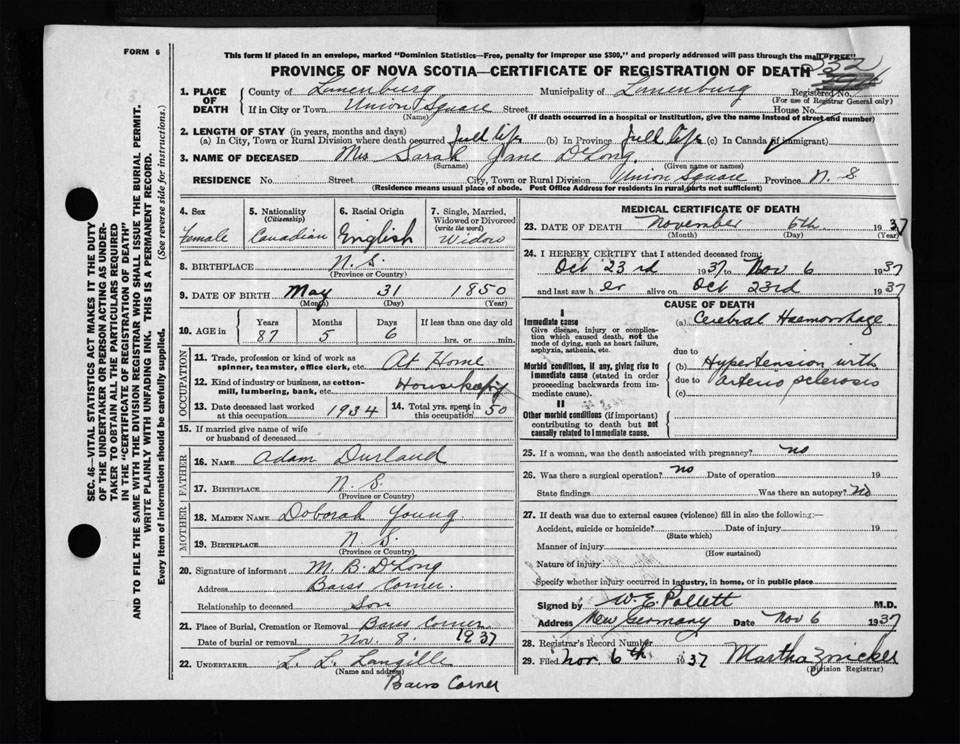 FORM 6
This form if placed in an envelope, marked "Dominion Statistics—Free, penalty for improper use $300," and properly addressed will pass through the mail "FREE"
PROVINCE OF NOVA SCOTIA—CERTIFICATE OF REGISTRATION OF DEATH
232
Registered No.
(For use of Registrar General only)
1. PLACE OF DEATH
County of Lunenburg Municipality of Lunenburg
If in City or Town Union Square Street House No.
(Name) (If death occurred in a hospital or institution, give the name instead of street and number)
2. LENGTH OF STAY (in years, months and days)
(a) In City, Town or Rural Division where death occurred full life (b) In Province full life (c) In Canada (if immigrant)
3. NAME OF DECEASED Mrs Sarah Jane D'Long
(Surname) (Given name or names)
RESIDENCE No. Street City, Town or Rural Division Union Square Province N. S
(Residence means usual place of abode. Post Office Address for residents in rural parts not sufficient)
4. Sex Female
5. Nationality (Citizenship) Canadian
6. Racial Origin English
7. Single, Married, Widowed or Divorced (write the word) Widow
8. BIRTHPLACE N. S.
(Province or Country)
9. DATE OF BIRTH May 31 1850
(Month) (Day) (Year)
10. AGE in Years Months Days If less than one day old
87 5 6 hrs. or min.
OCCUPATION
11. Trade, profession or kind of work as spinner, teamster, office clerk, etc. At Home
12. Kind of industry or business, as cotton-mill, lumbering, bank, etc.
13. Date deceased last worked at this occupation 1934
14. Total yrs. spent in this occupation 50
15. If married give name of wife or husband of deceased
FATHER
16. NAME Adam Durland
17. BIRTHPLACE N. S.
(Province or Country)
MOTHER
18. MAIDEN NAME Doborah Young
19. BIRTHPLACE N S.
(Province or Country)
20. Signature of informant M. B. D'Long
Address Barss Corner.
Relationship to deceased Son
21. Place of Burial, Cremation or Removal Barss Corner
Date of burial or removal Nov. 8. 1937
22. UNDERTAKER L. L. Langille
(Name and address)
Barss Corner
MEDICAL CERTIFICATE OF DEATH
23. DATE OF DEATH November 6th. 1937
(Month) (Day) (Year)
24. I HEREBY CERTIFY that I attended deceased from:
Oct 23rd 1937 to Nov 6 1937
and last saw her alive on Oct 23rd 1937
CAUSE OF DEATH
I
Immediate cause
Give disease, injury or complication which caused death, not the mode of dying, such as heart failure, asphyxia, asthenia, etc.
(a) Cerebral Haemorrhage
due to
Morbid conditions, if any, giving rise to immediate cause (stated in order proceeding backwards from immediate cause).
(b) Hypertension with
due to arterio sclerosis
(c)
II
Other morbid conditions (if important) contributing to death but not causally related to immediate cause.
25. If a woman, was the death associated with pregnancy? no
26. Was there a surgical operation? no Date of operation 19
State findings Was there an autopsy? No
27. If death was due to external causes (violence) fill in also the following:—
Accident, suicide or homicide? Date of injury 19
(State which)
Manner of injury
(How sustained)
Nature of injury
Specify whether injury occurred in industry, in home, or in public place
Signed by W. E. Pollett M.D.
Address New Germany Date Nov 6 1937
28. Registrar's Record Number
29. Filed Nov. 6th 1937 Martha Zwicker
(Division Registrar)
SEC. 46—VITAL STATISTICS ACT MAKES IT THE DUTY
OF THE UNDERTAKER OR PERSON ACTING AS UNDER-
TAKER TO OBTAIN ALL THE PARTICULARS REQUIRED
IN THE "CERTIFICATE OF REGISTRATION OF DEATH"
AND TO FILE THE SAME WITH THE DIVISION REGISTRAR WHO SHALL ISSUE THE BURIAL PERMIT.
WRITE PLAINLY WITH UNFADING INK. THIS IS A PERMANENT RECORD.
Every item of information should be carefully supplied. (See reverse side for instructions.)